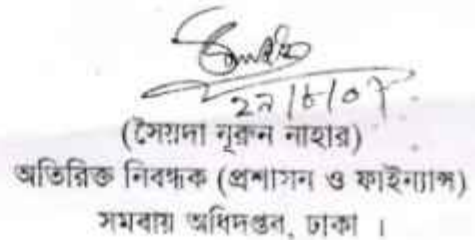 (সৈয়দা নূরুন নাহার)
অতিরিক্ত নিবন্ধক (প্রশাসন ও ফাইন্যান্স)
সমবায় অধিদপ্তর, ঢাকা ।